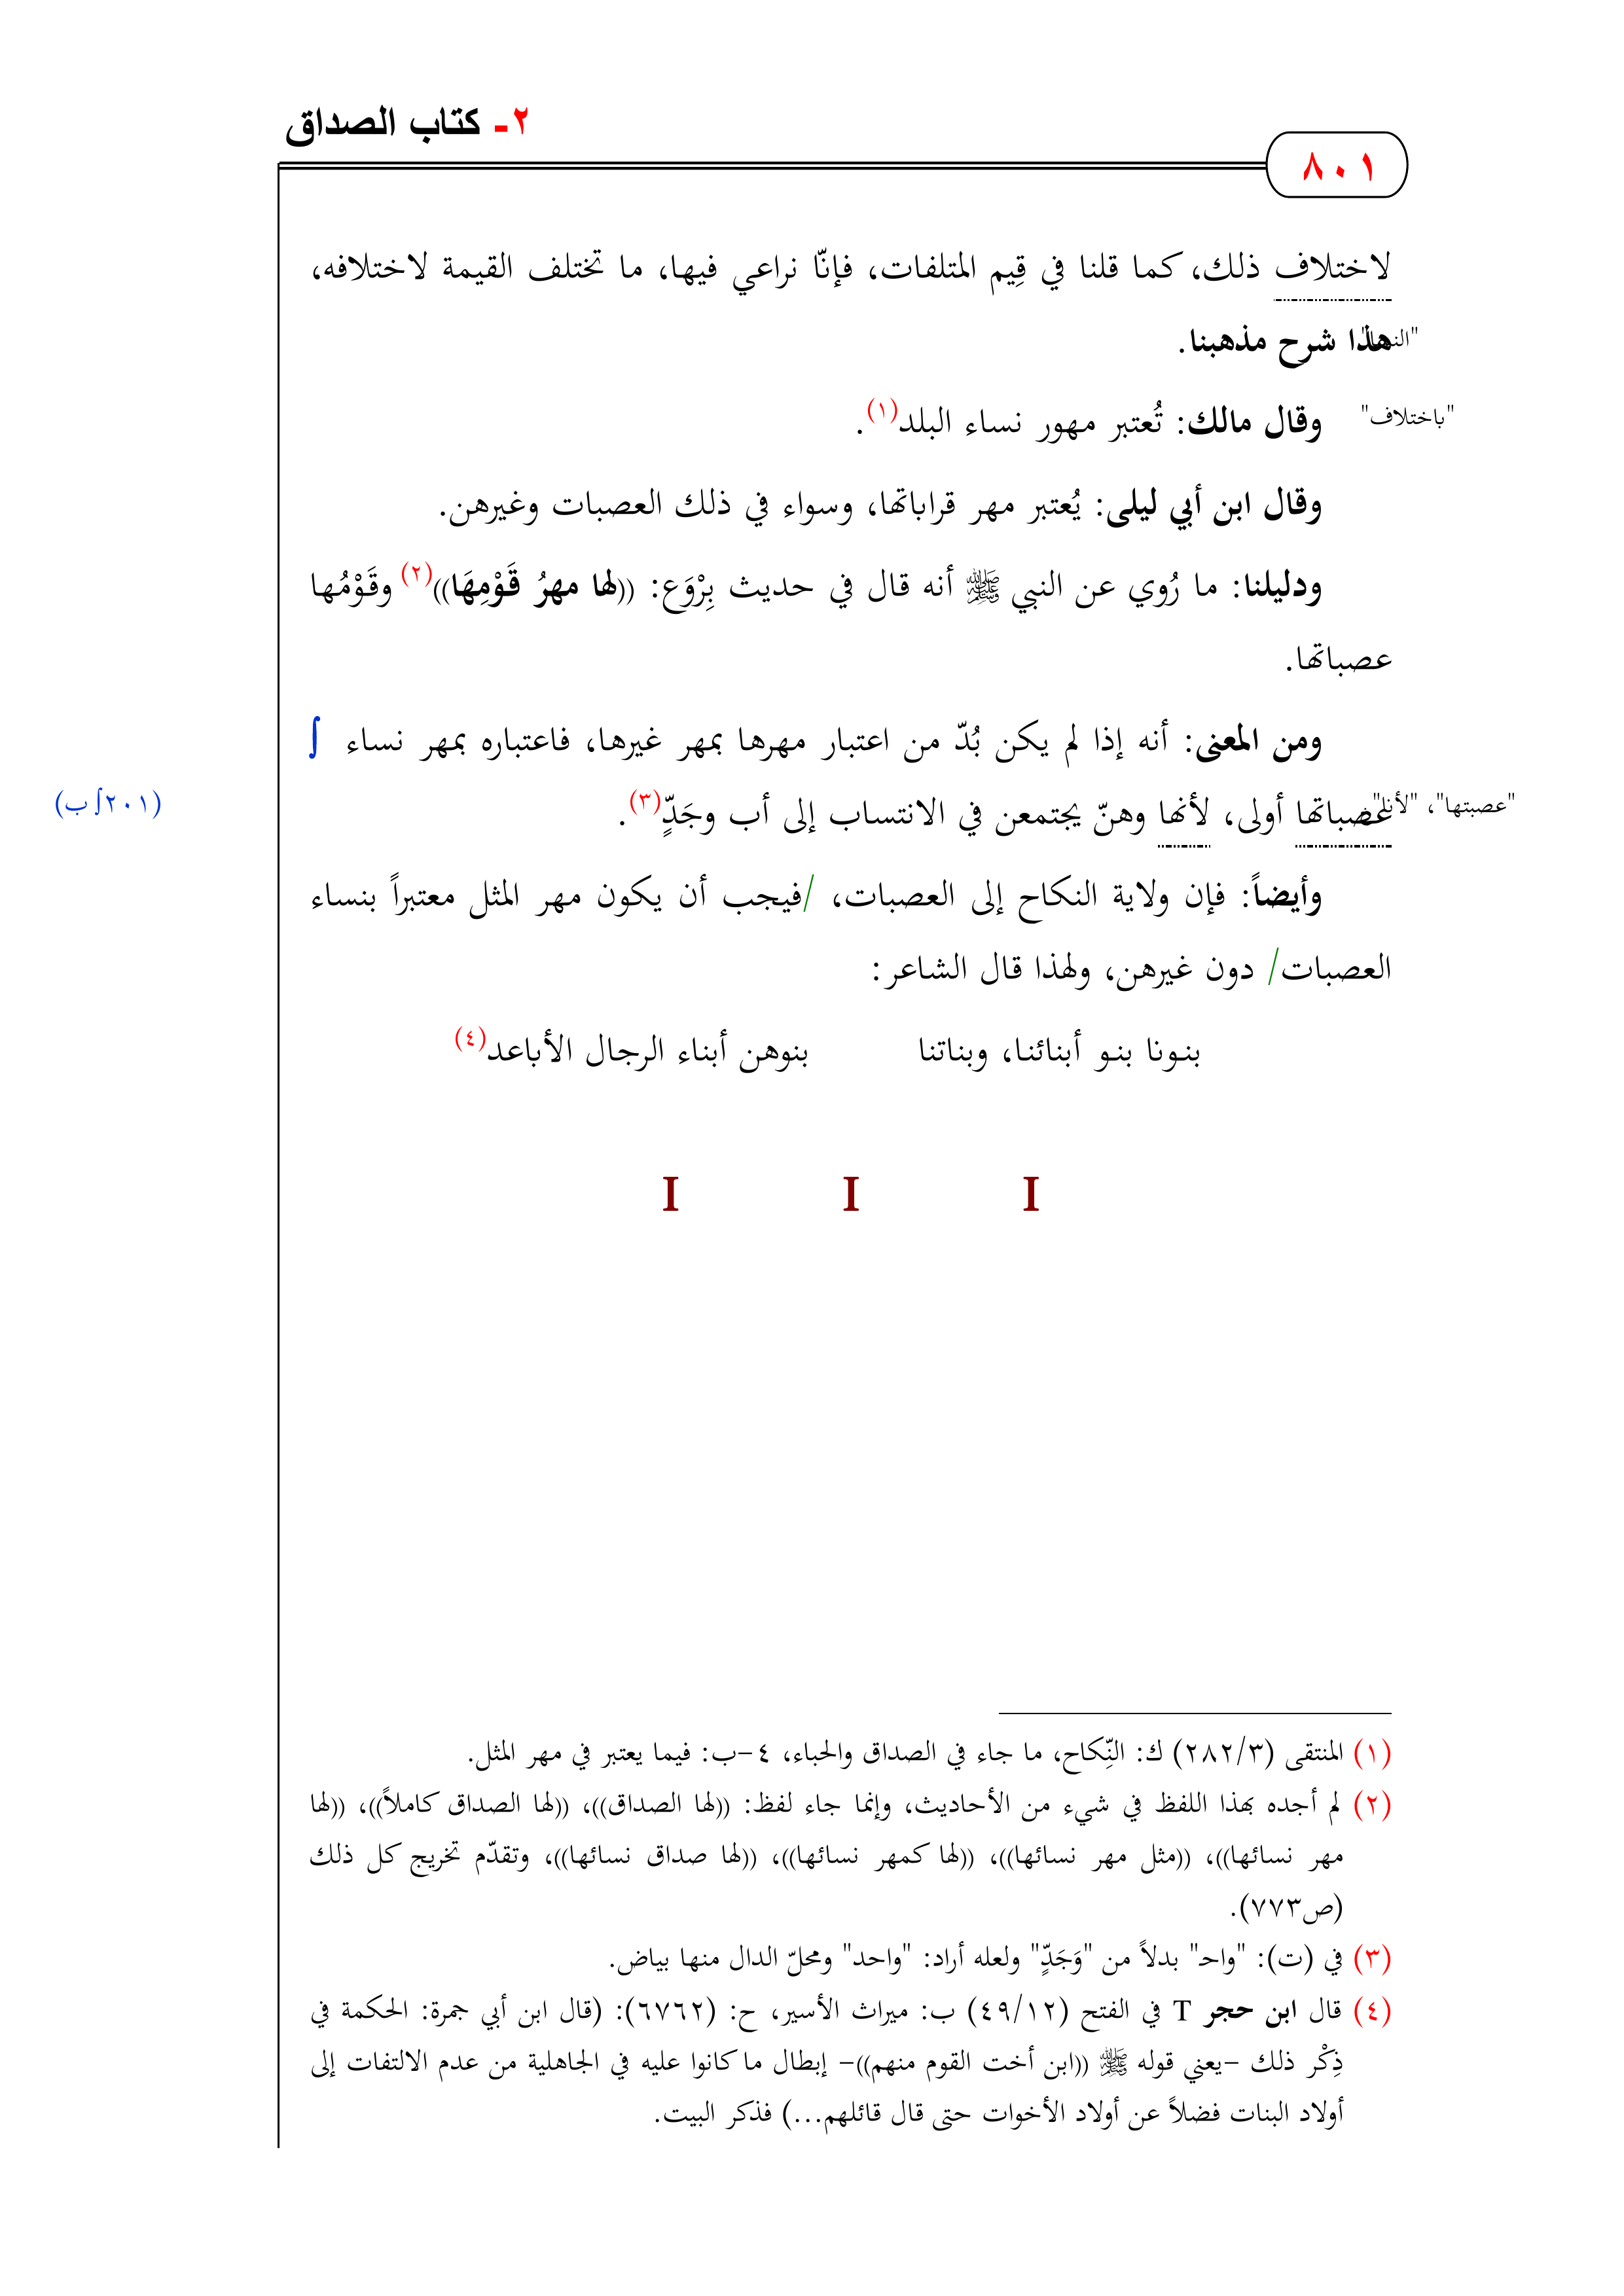 ٢- كتاب الصداق
٨٠١
لاختلاف ذلك، كما قلنا في قِيم المتلفات، فإنّا نراعي فيها، ما تختلف القيمة لاختلافه،
هذا شرح مذهبنا.
"باختلاف"
وقال مالك: تُعتبر مهور نساء البلد(١).
وقال ابن أبي ليلى: يُعتبر مهر قراباتها، وسواء في ذلك العصبات وغيرهن.
ودليلنا: ما رُوي عن النبي ﷺ أنه قال في حديث بِرْوَع: ((لها مهرُ قَوْمِهَا))(٢) وقَوْمُها
عصباتها.
ومن المعنى: أنه إذا لم يكن بُدّ من اعتبار مهرها بمهر غيرها، فاعتباره بمهر نساء ∫
"عصبتها"،
عصباتها أولى، لأنها وهنّ يجتمعن في الانتساب إلى أب وجَدٍّ(٣).
(٢٠١∫ب)
وأيضاً: فإن ولاية النكاح إلى العصبات، /فيجب أن يكون مهر المثل معتبراً بنساء
العصبات/ دون غيرهن، ولهذا قال الشاعر:
بنونا بنو أبنائنا، وبناتنا بنوهن أبناء الرجال الأباعد(٤)
I I I
(١) المنتقى (٢٨٢/٣) ك: النِّكاح، ما جاء في الصداق والحباء، ٤-ب: فيما يعتبر في مهر المثل.
(٢) لم أجده بهذا اللفظ في شيء من الأحاديث، وإنما جاء لفظ: ((لها الصداق))، ((لها الصداق كاملاً))، ((لها
مهر نسائها))، ((مثل مهر نسائها))، ((لها كمهر نسائها))، ((لها صداق نسائها))، وتقدّم تخريج كل ذلك
(ص٧٧٣).
(٣) في (ت): "واحـ" بدلاً من "وَجَدٍّ" ولعله أراد: "واحد" ومحلّ الدال منها بياض.
(٤) قال ابن حجر T في الفتح (٤٩/١٢) ب: ميراث الأسير، ح: (٦٧٦٢): (قال ابن أبي جمرة: الحكمة في
ذِكْر ذلك -يعني قوله ﷺ ((ابن أخت القوم منهم))- إبطال ما كانوا عليه في الجاهلية من عدم الالتفات إلى
أولاد البنات فضلاً عن أولاد الأخوات حتى قال قائلهم...) فذكر البيت.